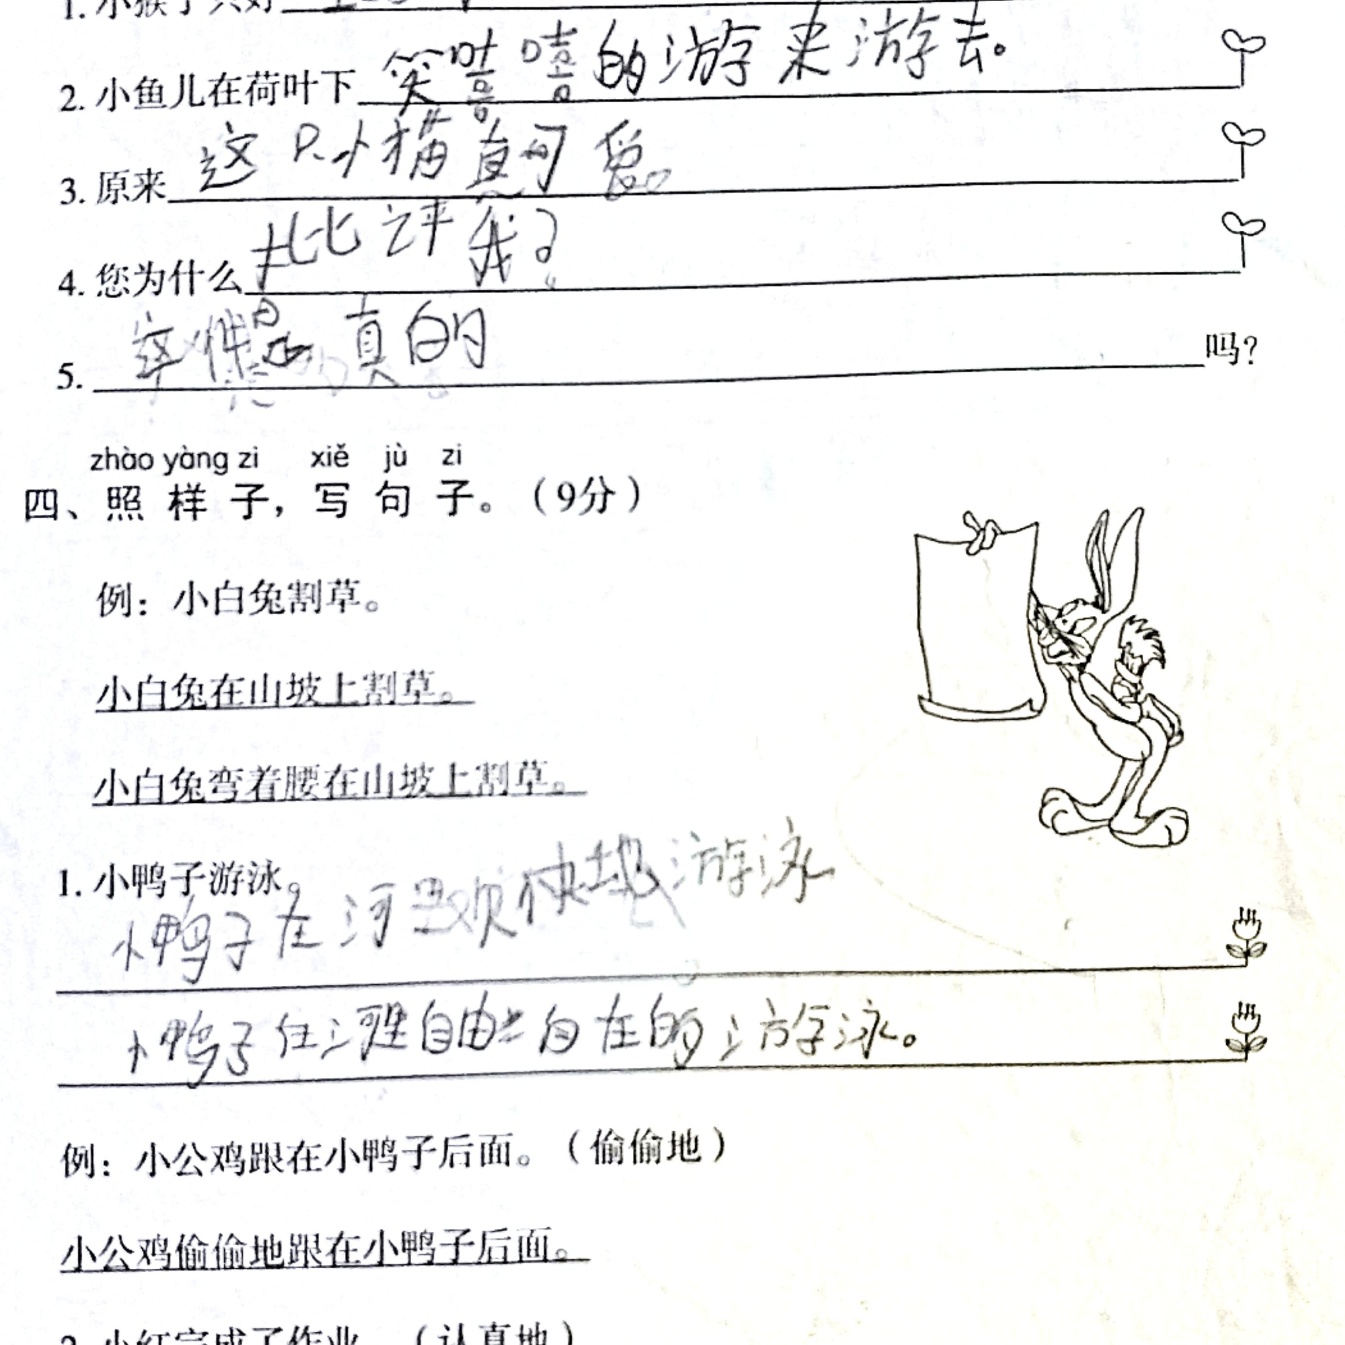 1. 小猴子只好
2. 小鱼儿在荷叶下笑嘻嘻的游来游去。
3. 原来这只小猫真可爱。
4. 您为什么批评我?
5. 这是真的吗?
zhào yàng zi xiě jù zi
四、照样子，写句子。（9分）
例：小白兔割草。
小白兔在山坡上割草。
小白兔弯着腰在山坡上割草。
1. 小鸭子游泳。
小鸭子在河里欢快地游泳
小鸭子在河里自由自在的游泳。
例：小公鸡跟在小鸭子后面。（偷偷地）
小公鸡偷偷地跟在小鸭子后面。
2. 小红完成了作业。（认真地）